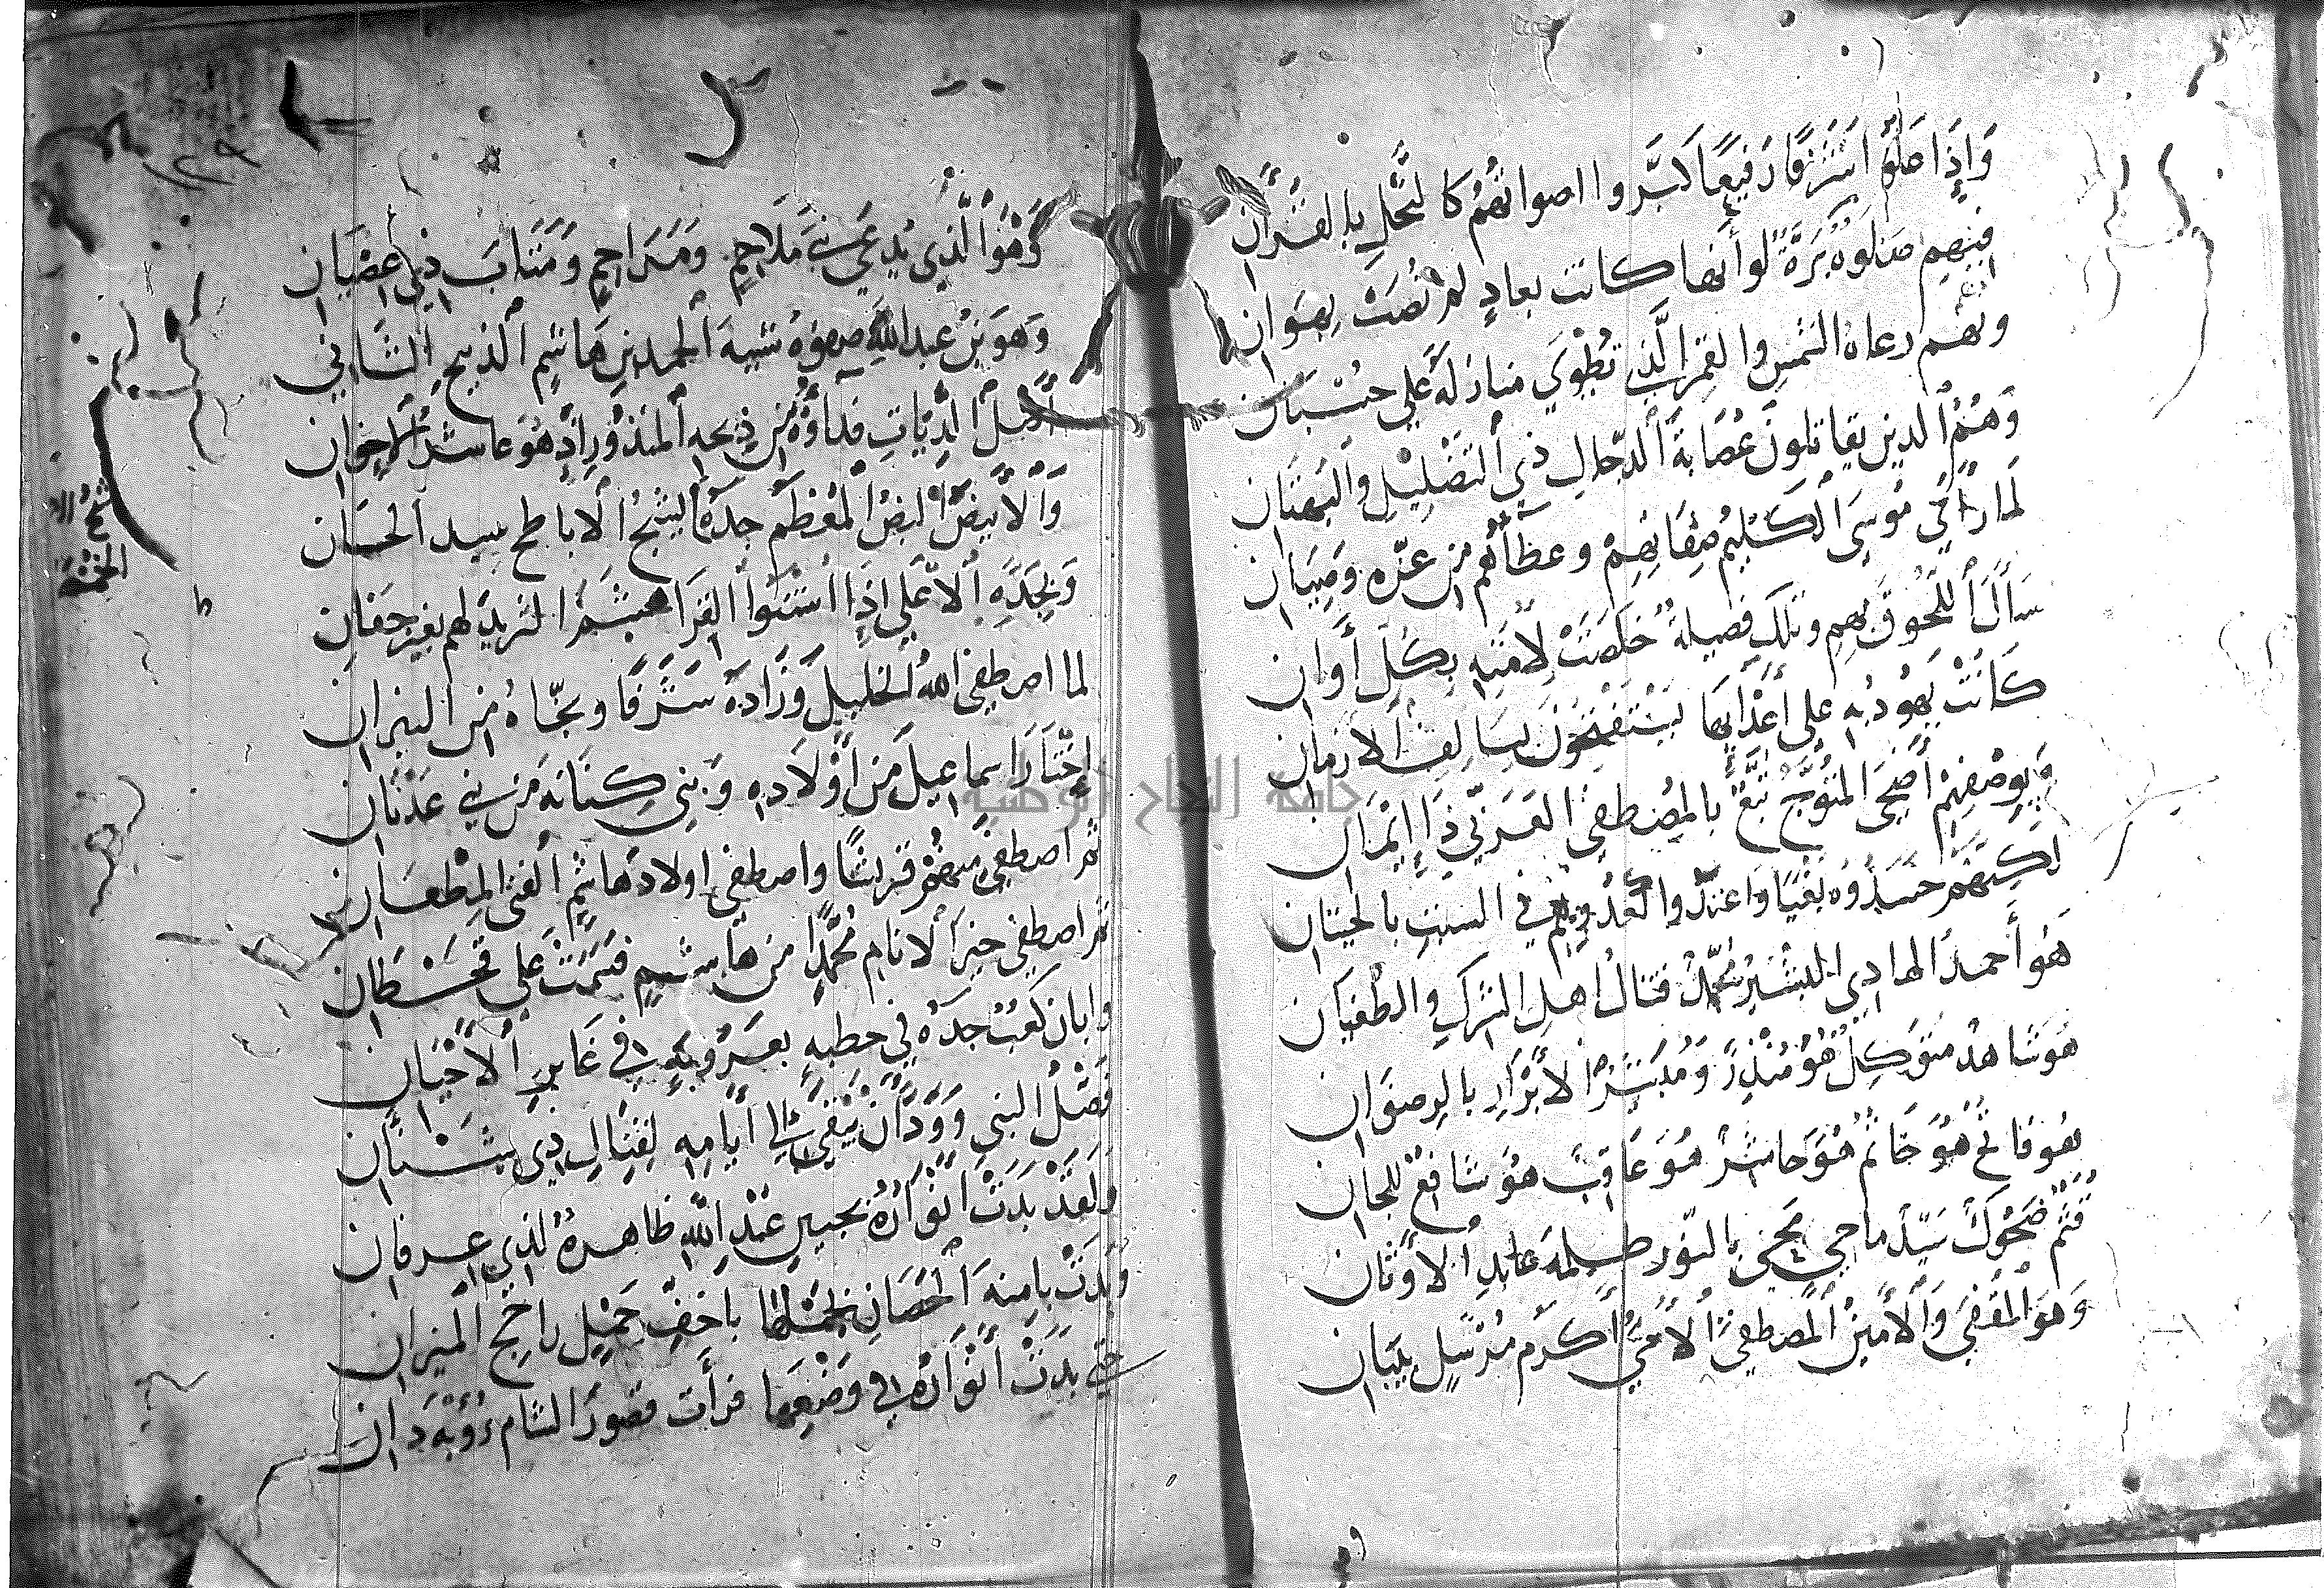 وَإِذَا عَلَوْا شَرَفًا رَفِيعًا كَبَّروا اصواتُهُمْ كالنَّحْلِ بالقُرْآن
فبهِم صَلوةٌ بَرَّةٌ لو أنها كانت بعادٍ لم تُصَبْ بِهَوَان
وهُم رعاة الشمس والقمر الَّذِي تُطْوَي منازله عَلي حُسْبَان
وَهُمُ الذين يقاتلونَ عُصَابةَ الدجّالِ ذي التضْلِيْلِ والبَهتَان
لما رأي مُوسَى الكليمُ صِفَاتِهِمْ وعظاتهم من عزّه وَصِيَان
سَألَ اللُّحُوقَ بِهِم وتلك فضيلة خَلَصَتْ لأمّتِهِ بِكُلِّ أَوَان
كَانَتْ يَهُودُ بِهِ علي أَعْدَائِهَا يَسْتَفْتِحُونَ بسَالِفِ الأزمان
وَبِوصْفِهِمْ أَضْحَي المتَوَّجُ تُبَّعٌ بالمُصْطفي العَرَبيّ ذَا إِيْمَان
لكِنَّهُمْ حَسَدُوه بَغْيًا وَاعْتدوا كَعُدُوِّهِمْ في السبت بالحيتان
هُوَ أحمدُ الهادِي البَشِيرُ مُحَمّدٌ قتال اهلِ الشركِ والطُغيَان
هُوَ شَاهدٌ متوَكِلٌ هُوَ مُنْذِرٌ وَمُبَشِّرُ الأبْرَارِ بالرضوان
هُو فاتحٌ هُوَ خَاتمٌ هُوَ حاشِرٌ هُوَ عَاقِبٌ هُوَ شَافعٌ للجان
قُثَمٌ ضَحُوكٌ سَيّدٌ ماحِي مَحَى بالنّور ظلمَةَ عابِدِ الأوثان
وَهوَ المُقَفّي والأمينُ المصطفي الأُمّيُّ أكرَم مُرْسَلٍ ببَيَان
وَهُوَ الّذِي يُدعَي نَبِيَّ مَلاَحِمٍ وَمَرَاحِمٍ وَمَتَابَ ذِي عِصْيَان
وَهوَ بنُ عبد اللهِ صفوةُ شيبةَ الحمدِ بنِ هَاشِمٍ الذبيحِ الثَّاني
الدِّيَاتِ فدَاؤُهُ مِن ذبحه المنذورِ إِذ هُوَ عاشرُ الإخوان
وَالأبيَضُ المُعْظَم جَدُّهُ شيخُ الاباطح سيد الحسَان
وَبِجَدِّهِ الأعْلَي إِذَا اشتوا القرَا هَشَمَ الثريدَ لهم بغير جفان
لما اصطفي اللهُ الخليلَ وَزَادَهُ شَرَفًا ونجّاهُ مِن النيران
إختَارَ اسماعيلَ مِن أَوْلاَدِهِ وَبني كِنَانَة مِن بني عَدْنَان
ثم اصطفي مِنهُمْ قريشًا واصطفي اولادَ هَاشِمٍ الفتي المِطعَان
ثم اصطفي خيرَ الانام مُحَمَّدًا مِن هاشمٍ فسَمَتْ علي قحْطَان
وابان كعبٌ جدّه في خطبةٍ بعَرُوبةٍ في غَابِرِ الأَحْيَان
فَضْلَ النبي وَوَدَّ أَنْ يَبْقَي إلي أَيَّامِهِ لِقِتَالِ ذِي شَنْآن
وَلَقَدْ بَدَتْ انْوَارُهُ بجبينِ عبْدِ اللهِ ظاهرةً لذي عِرفان
وَبَدَتْ بآمنةِ الحَصَانِ بحَمْلهَا باخفّ حَمْلٍ راجحِ الميزان
حَتّي بَدَتْ أَنْوَارُهُ في وَضْعِهَا فرأت قصورَ الشام